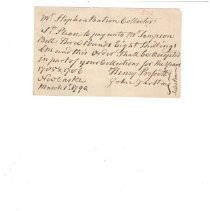 Mr Stephen Batson Collector
Sr Please to pay unto Mr Sampson
Bill Three Pounds Eight Shillings
Lm and this Order Shall be Accepted
in part of your Collections for the Years
1785 & 1786
Henry
New Castle John
March 1st 1790
Selectmen